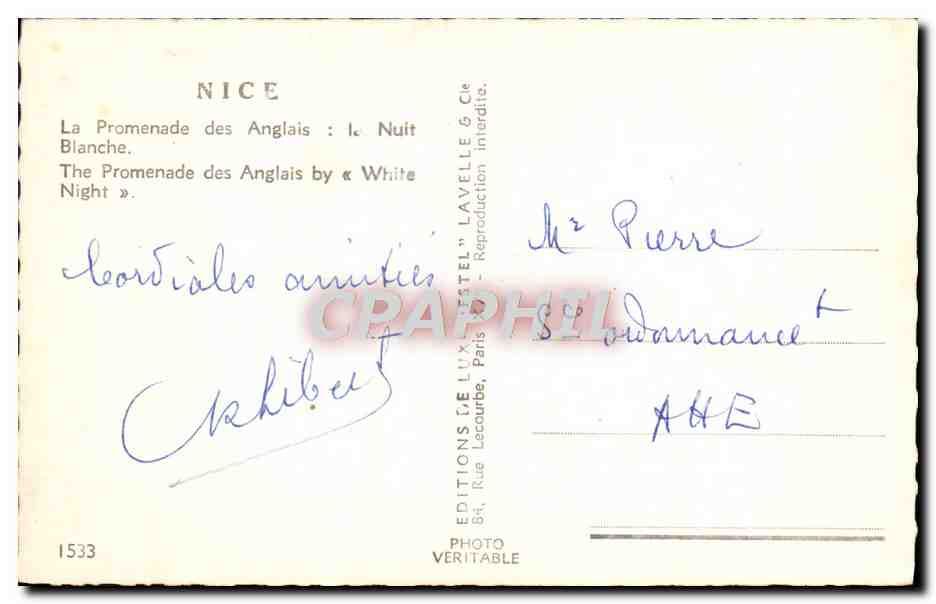 NICE
La Promenade des Anglais : la Nuit
Blanche.
The Promenade des Anglais by « White
Night ».
Cordiales amitiés
1533
EDITIONS DE LUXE "ESTEL" LAVELLE & Cie
84, Rue Lecourbe, Paris XV - Reproduction interdite.
PHOTO
VÉRITABLE
Mr Pierre
Sce ordonnance
AHE
CPAPHIL